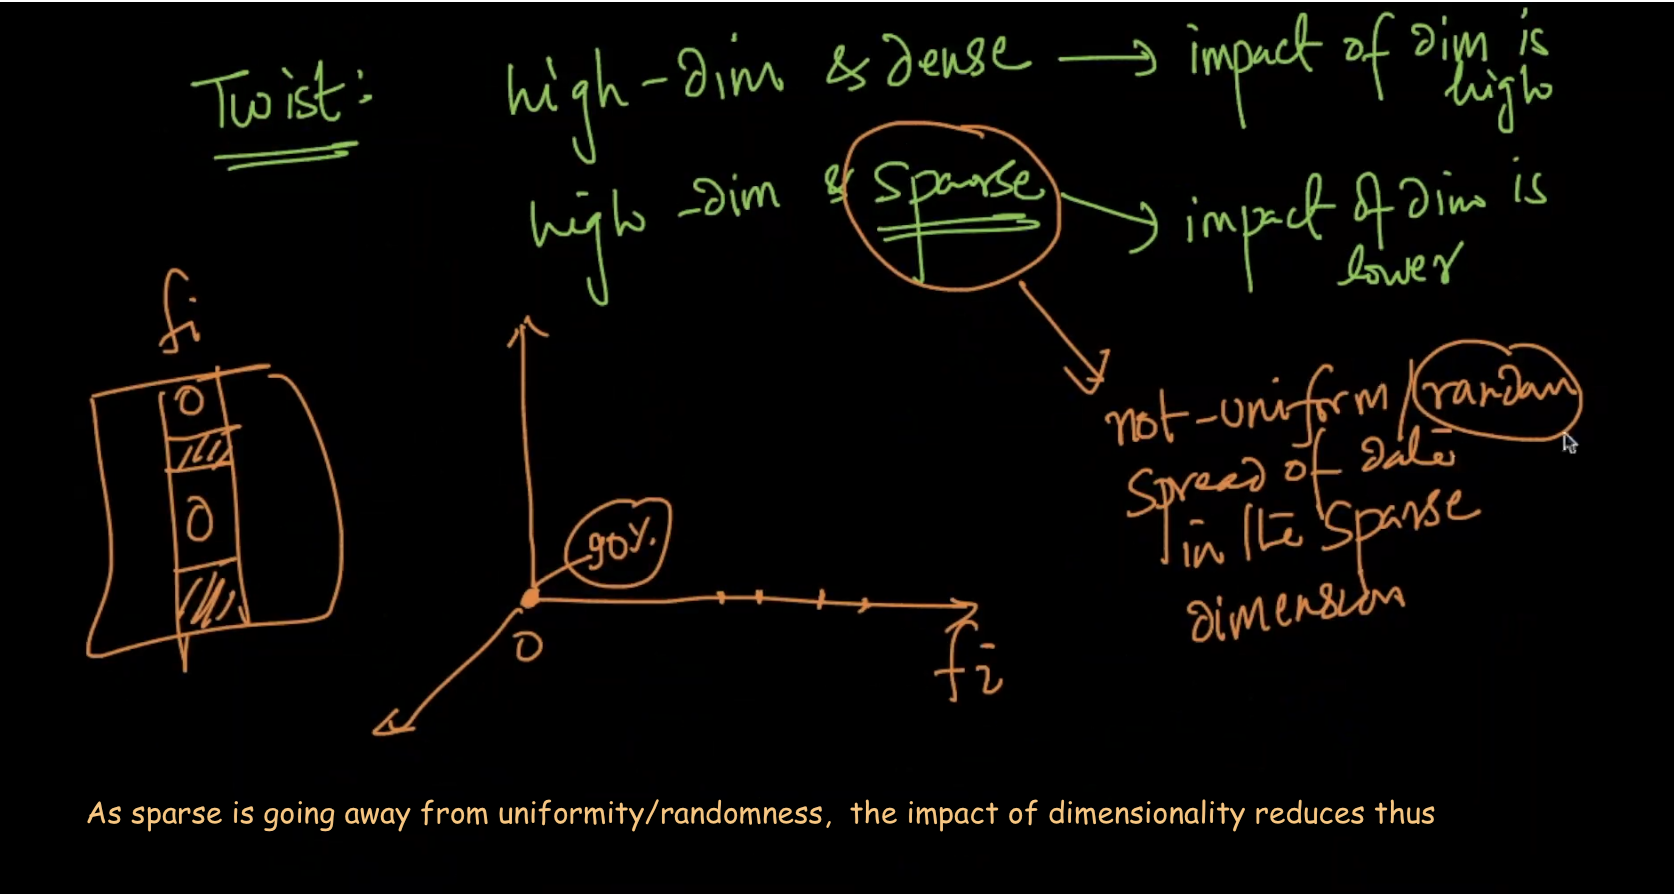 Twist: high-dim & dense → impact of dim is high
high-dim & sparse → impact of dim is lower
fi
0
0
90%
0
fi
not-uniform/random
spread of data
in the sparse
dimension
As sparse is going away from uniformity/randomness, the impact of dimensionality reduces thus